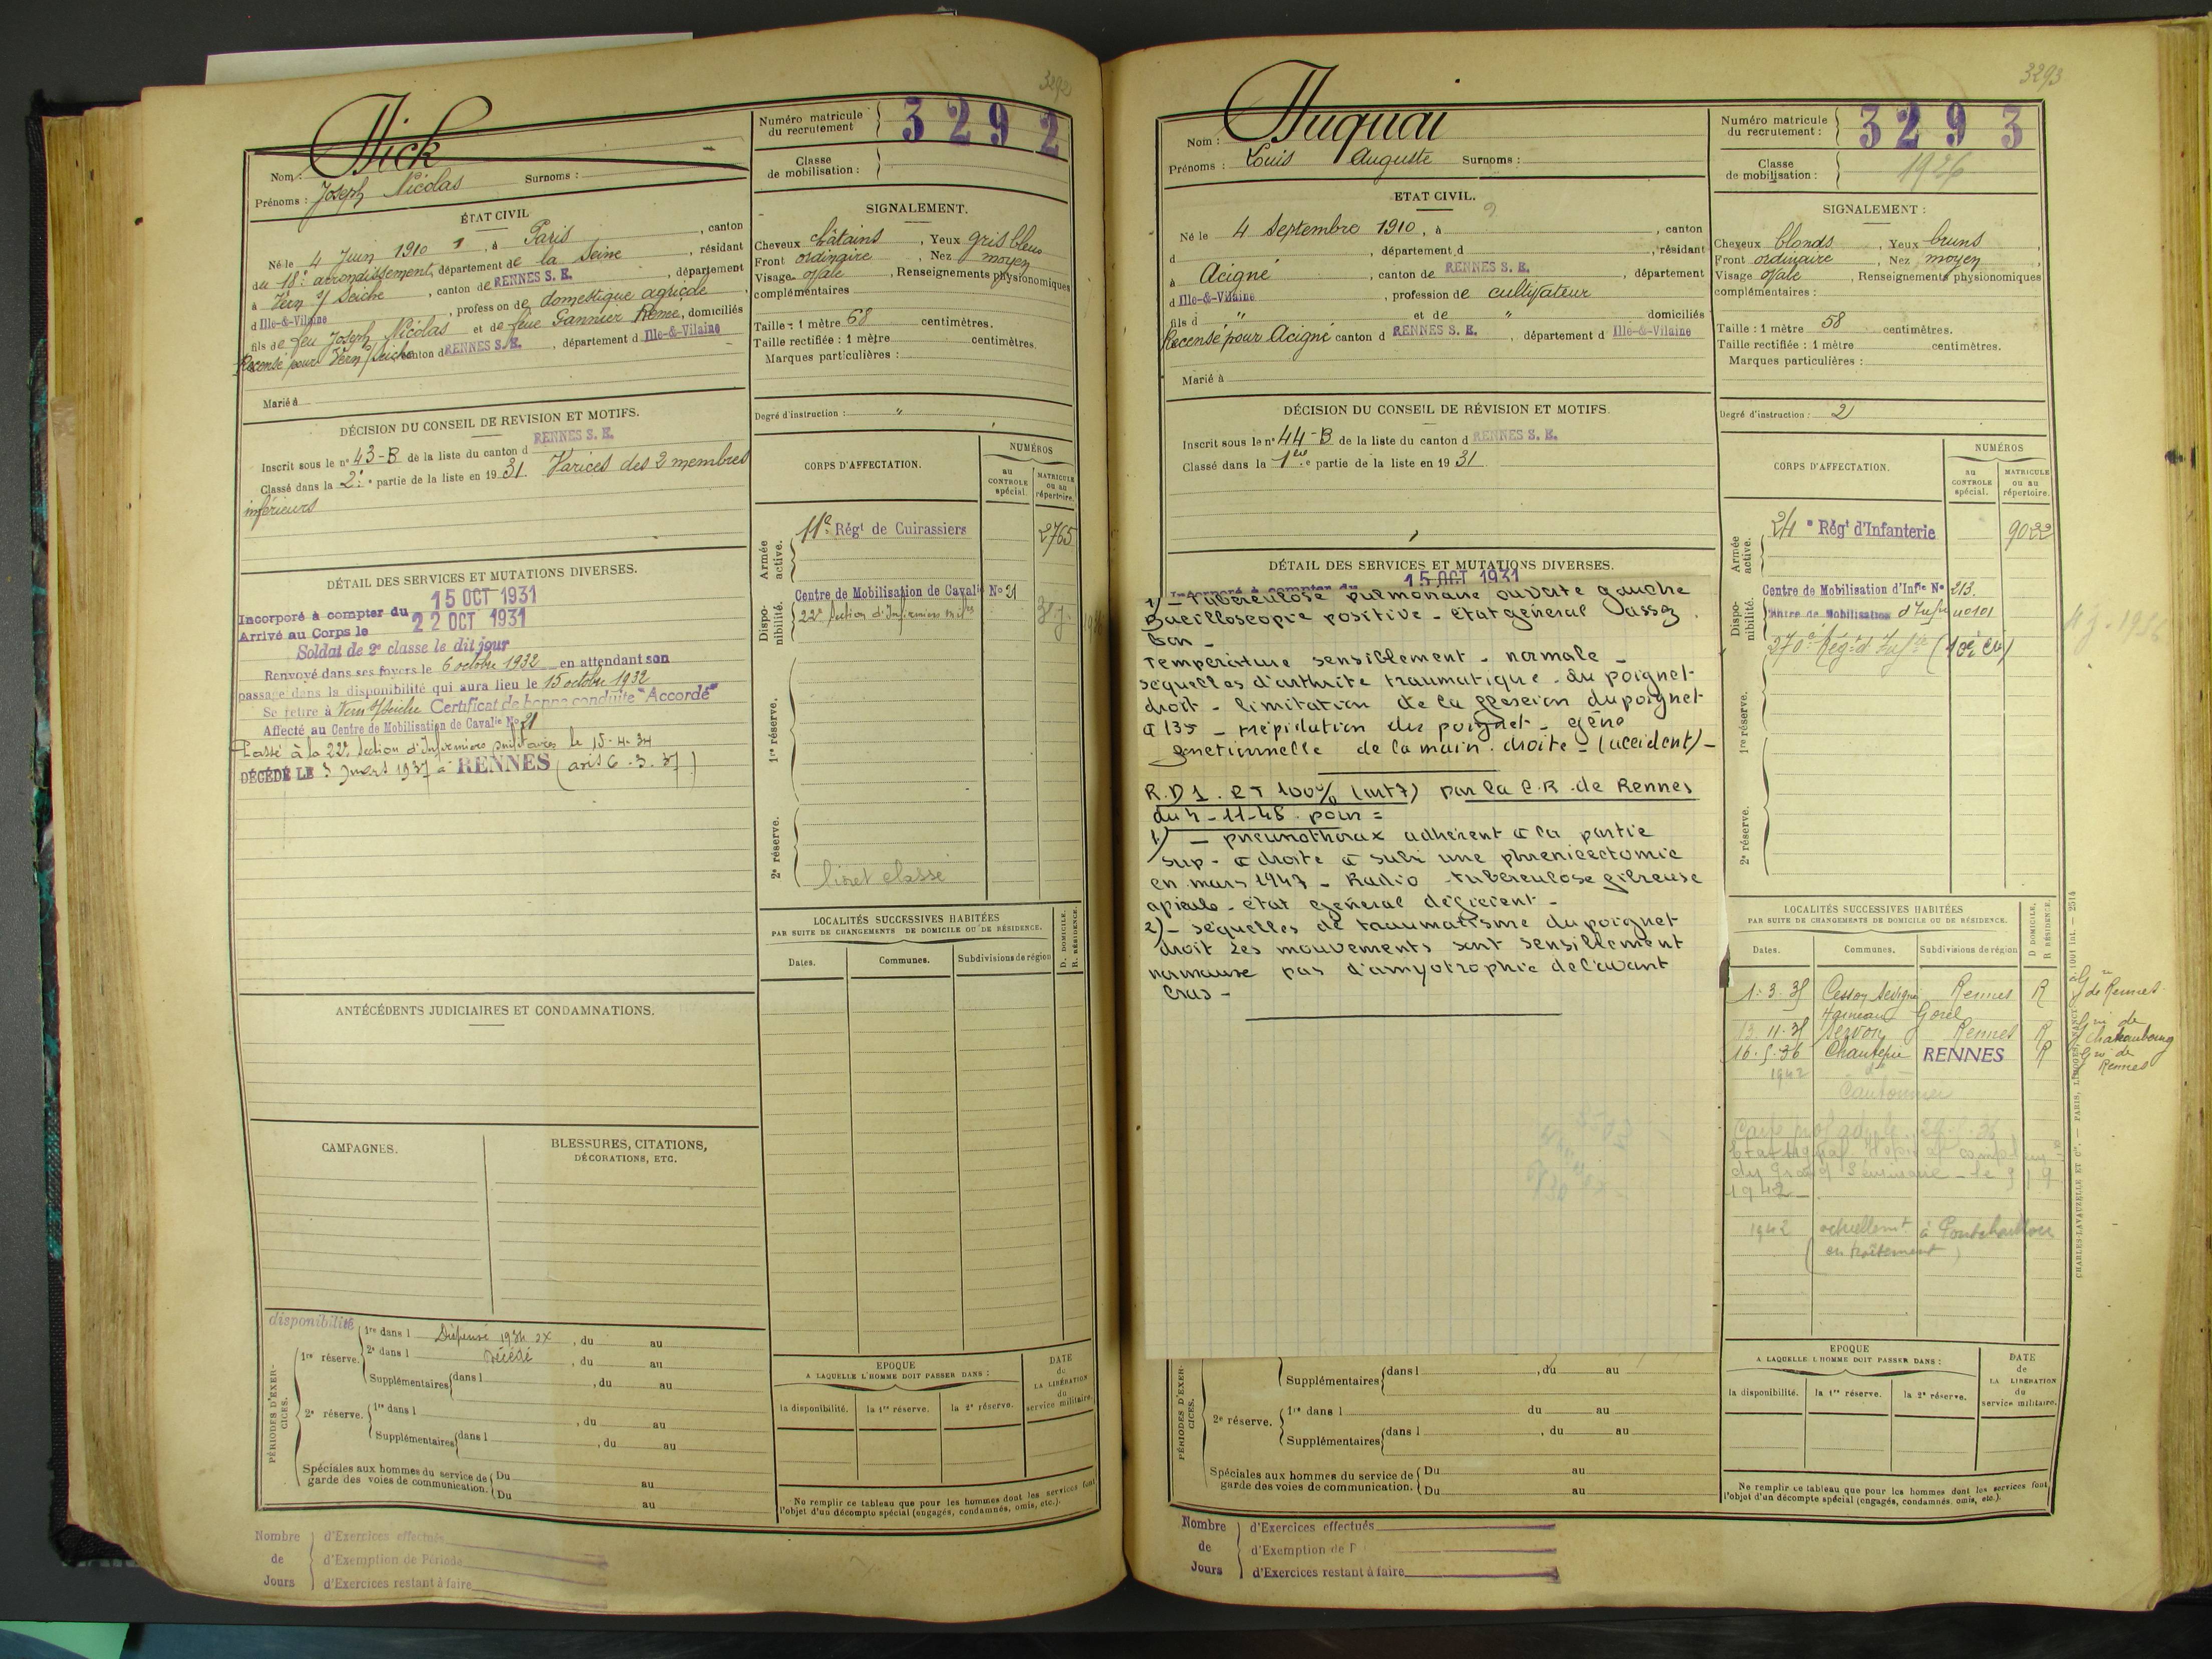 3292
Nom : Nick
Prénoms : Joseph Nicolas Surnoms :
Numéro matricule du recrutement 3292
Classe de mobilisation :
ÉTAT CIVIL
Né le 4 Juin 1910, à Paris, canton
du 18e arrondissement, département de la Seine, résidant
à Vern s/ Seiche, canton de RENNES S. E., département
d Ille-&-Vilaine, profession de domestique agricole
fils de feu Joseph Nicolas et de feue Gannier, domiciliés
Recensé pour Vern s/ Seiche canton d RENNES S. E., département d Ille-&-Vilaine
Marié à
SIGNALEMENT.
Cheveux châtains, Yeux gris bleu
Front ordinaire, Nez moyen
Visage ovale, Renseignements physionomiques
complémentaires
Taille : 1 mètre 68 centimètres.
Taille rectifiée : 1 mètre centimètres.
Marques particulières :
Degré d'instruction : "
DÉCISION DU CONSEIL DE REVISION ET MOTIFS.
Inscrit sous le n° 43-B de la liste du canton d RENNES S. E.
Classé dans la 2e partie de la liste en 1931 Varices des 2 membres
inférieurs
CORPS D'AFFECTATION.
NUMÉROS
au CONTROLE spécial.
MATRICULE ou au répertoire.
Armée active.
11e Régt de Cuirassiers 2765
Disponibilité.
Centre de Mobilisation de Cavalie No 21
22e Section d'Infirmiers mil
1re réserve.
2e réserve.
livret classé
DÉTAIL DES SERVICES ET MUTATIONS DIVERSES.
Incorporé à compter du 15 OCT 1931
Arrivé au Corps le 22 OCT 1931
Soldat de 2e classe le dit jour
Renvoyé dans ses foyers le 6 octobre 1932 en attendant son
passage dans la disponibilité qui aura lieu le 15 octobre 1932
Se retire à Vern s/ Seiche Certificat de bonne conduite "Accordé"
Affecté au Centre de Mobilisation de Cavalie No 21
Passé à la 22e Section d'Infirmiers militaires le 15.4.34
DÉCÉDÉ LE 5 Mars 1937 à RENNES (avis 6.3.37)
LOCALITÉS SUCCESSIVES HABITÉES
PAR SUITE DE CHANGEMENTS DE DOMICILE OU DE RÉSIDENCE.
Dates. Communes. Subdivisions de région
D. DOMICILE.
R. RÉSIDENCE.
ANTÉCÉDENTS JUDICIAIRES ET CONDAMNATIONS.
CAMPAGNES.
BLESSURES, CITATIONS,
DÉCORATIONS, ETC.
PÉRIODES D'EXERCICES.
disponibilité
1re réserve. 1re dans l Dispensé 1934, du au
2e dans l décédé, du au
Supplémentaires dans l, du au
2e réserve. 1re dans l, du au
Supplémentaires dans l, du au
Spéciales aux hommes du service de garde des voies de communication. Du au
Du au
EPOQUE
A LAQUELLE L'HOMME DOIT PASSER DANS :
la disponibilité. la 1re réserve. la 2e réserve.
DATE de LA LIBÉRATION du service militaire.
Ne remplir ce tableau que pour les hommes dont les services font
l'objet d'un décompte spécial (engagés, condamnés, omis, etc.).
Nombre de Jours
d'Exercices effectués
d'Exemption de Période
d'Exercices restant à faire
3293
Nom : Huquai
Prénoms : Louis Auguste Surnoms :
Numéro matricule du recrutement : 3293
Classe de mobilisation : 1926
ETAT CIVIL.
Né le 4 Septembre 1910, à, canton
d, département d, résidant
à Acigné, canton de RENNES S. E., département
d Ille-&-Vilaine, profession de cultivateur
fils d " et de " domiciliés
Recensé pour Acigné canton d RENNES S. E., département d Ille-&-Vilaine
Marié à
SIGNALEMENT :
Cheveux blonds, Yeux bruns
Front ordinaire, Nez moyen
Visage ovale, Renseignements physionomiques
complémentaires :
Taille : 1 mètre 58 centimètres.
Taille rectifiée : 1 mètre centimètres.
Marques particulières :
Degré d'instruction : 2
DÉCISION DU CONSEIL DE RÉVISION ET MOTIFS.
Inscrit sous le n° 44-B de la liste du canton d RENNES S. E.
Classé dans la 1ère partie de la liste en 1931.
CORPS D'AFFECTATION.
NUMÉROS
au CONTROLE spécial.
MATRICULE ou au répertoire.
Armée active.
24e Régt d'Infanterie 9022
Disponibilité.
Centre de Mobilisation d'Infie No 213.
Centre de Mobilisation d'Infie 101
270e Régt d'Infie
1re réserve.
2e réserve.
DÉTAIL DES SERVICES ET MUTATIONS DIVERSES.
Incorporé à compter du 15 OCT 1931
1) - Tuberculose pulmonaire ouverte gauche
Bacilloscopie positive - Etat général assez
bon -
Température sensiblement - normale -
séquelles d'arthrite traumatique - du poignet
droit - limitation de la flexion du poignet
à 135 - trépidation du poignet - gêne
fonctionnelle de la main droite - (accident) -
R.D 1. ET 100% (art 7) par la C.R. de Rennes
du 4-11-48 pour =
1) - pneumothorax adhérent à la partie
sup - à droite a subi une phrenicectomie
en mars 1947 - Radio - tuberculose fibreuse
apicale - état général déficient -
2) - séquelles de traumatisme du poignet
droit Les mouvements sont sensiblement
normaux pas d'amyotrophie de l'avant
bras -
LOCALITÉS SUCCESSIVES HABITÉES
PAR SUITE DE CHANGEMENTS DE DOMICILE OU DE RÉSIDENCE.
Dates. Communes. Subdivisions de région
D DOMICILE.
R RÉSIDENCE.
1.3.35 Cesson Sévigné Rennes R Gie de Rennes
Hameau Gorel
13.11.35 Servon Rennes R Gie de Chateaubourg
16.5.36 Chantepie RENNES R Gie de Rennes
1942
Cantonnier
du Grand Séminaire - le
1942 -
1942 actuellemt à Pontchaillou
(en traitement)
CHARLES-LAVAUZELLE ET Cie. — PARIS, LIMOGES, NANCY
PÉRIODES D'EXERCICES.
Supplémentaires dans l, du au
2e réserve. 1re dans l du au
Supplémentaires dans l, du au
Spéciales aux hommes du service de garde des voies de communication. Du au
Du au
EPOQUE
A LAQUELLE L'HOMME DOIT PASSER DANS :
la disponibilité. la 1re réserve. la 2e réserve.
DATE de LA LIBÉRATION du service militaire.
Ne remplir ce tableau que pour les hommes dont les services font
l'objet d'un décompte spécial (engagés, condamnés, omis, etc.).
Nombre de Jours
d'Exercices effectués
d'Exemption de P
d'Exercices restant à faire